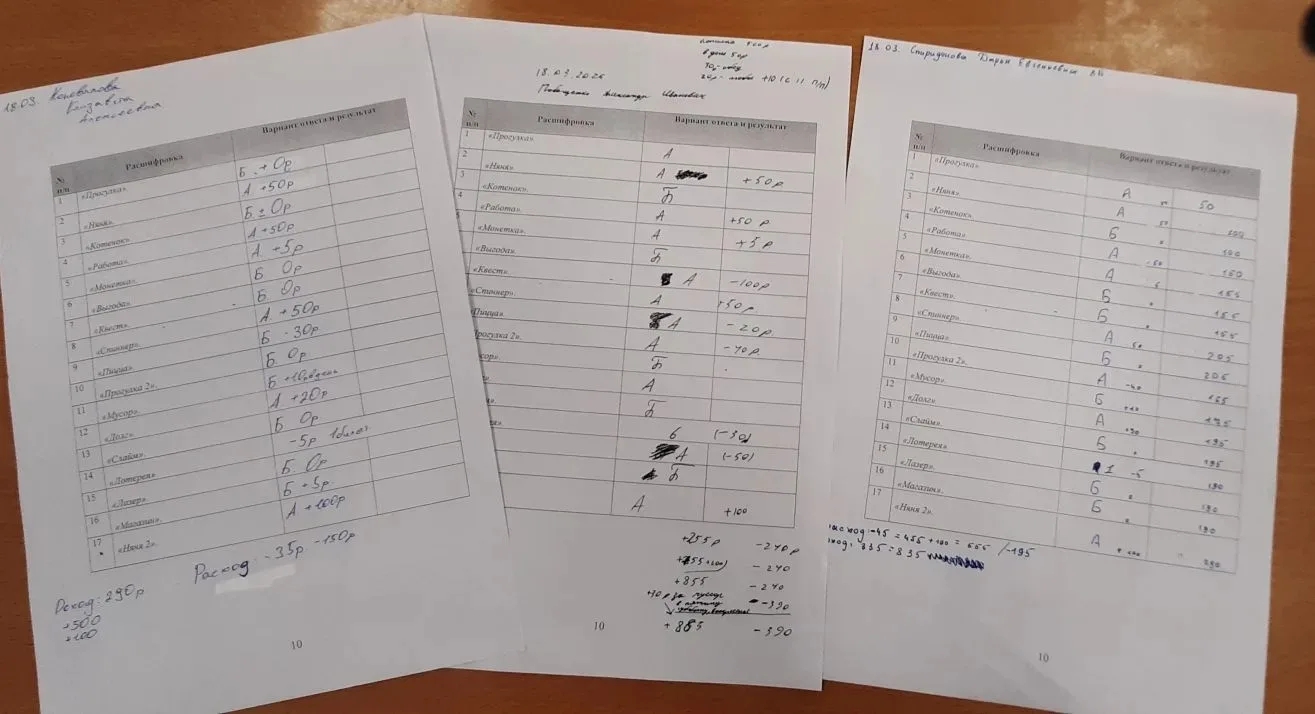 18.03. Коновалова
Елизавета
Алексеевна
№ п/п Расшифровка Вариант ответа и результат
1 «Прогулка». Б. + 0р
2 «Няня». А +50р
3 «Котенок». Б ± 0р
4 «Работа». А +50р
5 «Монетка». А +5р
6 «Выгода». Б. 0р
7 «Квест». Б. 0р
8 «Спиннер». А +50р
9 «Пицца». Б -30р
10 «Прогулка 2». Б. 0р
11 «Мусор». Б +10р в день
12 «Долг». А +20р
13 «Слайм». Б 0р
14 «Лотерея» -5р 1 билет
15 «Лазер». Б. 0р
16 «Магазин». Б +5р
17 «Няня 2». А +100р
Расход: -35р. -150р
Доход: 290р
+500
+100
10
в день 50р
18.03.2025
Александр Иванович
№ п/п Расшифровка Вариант ответа и результат
1 «Прогулка». А
2 «Няня». А +50р
3 «Котенок». Б
4 «Работа». А +50р
5 «Монетка». А +5р
«Выгода». Б
«Квест». А -100р
«Спиннер». А +50р
«Пицца». А -20р
рогулка 2». А -40р
сор». Б
А
Б
я». б (-30)
А (-50)
Б
А +100
+255р -240р
-240
+855 -240
-390
+885 -390
10
18.03. Спиридонова Дарья Евгеньевна
№ п/п Расшифровка Вариант ответа и результат
1 «Прогулка». А 50
2 «Няня». А 50 100
3 «Котенок». Б 100
4 «Работа». А 50 150
5 «Монетка». А 5 155
6 «Выгода». Б 155
7 «Квест». Б 155
8 «Спиннер». А 50 205
9 «Пицца». Б 205
10 «Прогулка 2». А -40 165
11 «Мусор». Б +10
12 «Долг». А +20 195
13 «Слайм». Б 195
14 «Лотерея». 1 -5 190
15 «Лазер». Б 190
16 «Магазин». Б 190
17 «Няня 2». А 290
асход: -45 = 455 + 100 = 555 /-195
оход: 335 = 835
10